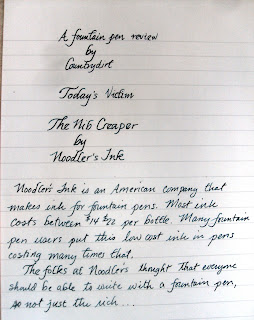 A fountain pen review
by
Countrydirt
Today's Victim
The Nib Creaper
by
Noodler's Ink
Noodler's Ink is an American company that
makes ink for fountain pens. Most ink
costs between $14 $20 per bottle. Many fountain
pen users put this low cost ink in pens
costing many times that.
The folks at Noodlers thought that everyone
should be able to write with a fountain pen,
not just the rich...